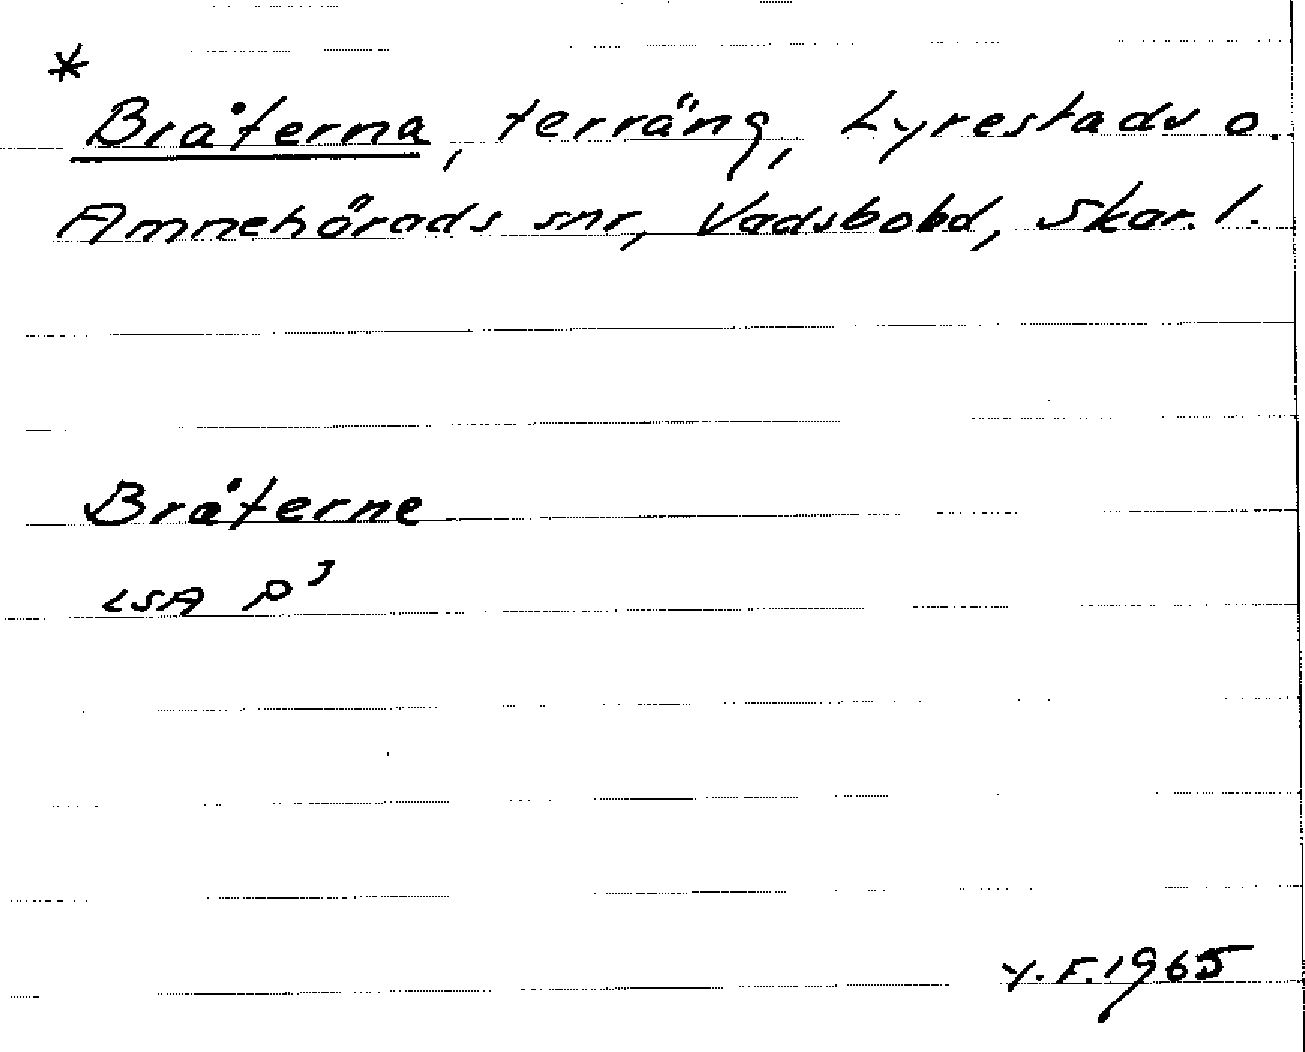 *
Bråterna, terräng, Lyrestads o.
Amnehärads snr, Vadsbohd, Skar. l.
Bråterne
LSA P³
Y.F. 1965